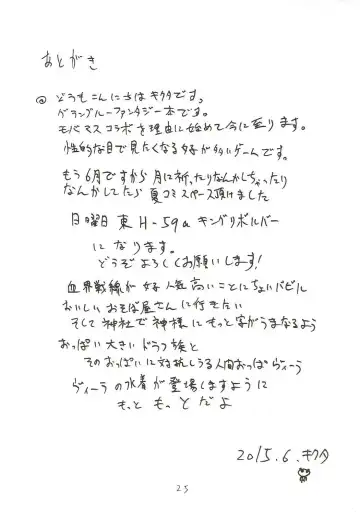 あとがき
◎どうもこんにちはキクタです。
グランブルーファンタジー本です。
モバマスコラボを理由に始めて今に至ります。
性的な目で見たくなる女子が多いゲームです。
もう6月ですから月に祈ったりなんかしちゃったり
なんかしてたら夏コミスペース頂けました
日曜日 東H-59a キングリボルバー
になります。
どうぞよろしくお願いします!
血界戦線が好人気高いことにちょいバビル
おいしいおそば屋さんに行きたい
そして神社で神様にもっと字がうまなるよう
おっぱい大きいドラフ族と
そのおっぱいに対抗しうる人間おっぱヴィーラ
ヴィーラの水着が登場しますように
もっともっとだよ
2015.6.キクタ
25